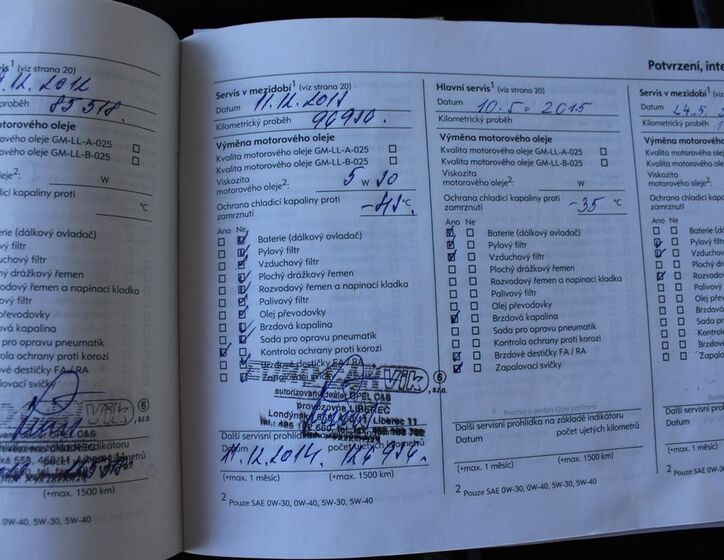 vis¹ (viz strana 20)
.12.2012
průběh 85 518.
motorového oleje
ového oleje GM-LL-A-025
ového oleje GM-LL-B-025
oleje²: W
ladicí kapaliny proti
°C
aterie (dálkový ovladač)
ylový filtr
zduchový filtr
lochý drážkový řemen
ozvodový řemen a napínací kladka
alivový filtr
lej převodovky
rzdová kapalina
ada pro opravu pneumatik
ontrola ochrany proti korozi
rzdové destičky FA / RA
apalovací svíčky
(+max. 1500 km)
0W-40, 5W-30, 5W-40
Servis v mezidobí¹ (viz strana 20)
Datum 11.12.2013
Kilometrický průběh 96930.
Výměna motorového oleje
Kvalita motorového oleje GM-LL-A-025
Kvalita motorového oleje GM-LL-B-025
Viskozita
motorového oleje²: 5 W 30
Ochrana chladicí kapaliny proti
zamrznutí °C
Ano Ne
Baterie (dálkový ovladač)
Pylový filtr
Vzduchový filtr
Plochý drážkový řemen
Rozvodový řemen a napínací kladka
Palivový filtr
Olej převodovky
Brzdová kapalina
Sada pro opravu pneumatik
Kontrola ochrany proti korozi
Brzdové destičky FA / RA
Zapalovací svíčky
autorizovaný dealer OPEL C&S
provozovna LIBEREC
Londýnská Liberec 11
Další servisní prohlídka
Datum počet ujetých kilometrů
11.12.2014.
(+max. 1 měsíc) (+max. 1500 km)
² Pouze SAE 0W-30, 0W-40, 5W-30, 5W-40
Hlavní servis¹ (viz strana 20)
Datum 10.5. 2015
Kilometrický průběh
Výměna motorového oleje
Kvalita motorového oleje GM-LL-A-025
Kvalita motorového oleje GM-LL-B-025
Viskozita
motorového oleje²: W
Ochrana chladicí kapaliny proti
zamrznutí -35 °C
Ano Ne
Baterie (dálkový ovladač)
Pylový filtr
Vzduchový filtr
Plochý drážkový řemen
Rozvodový řemen a napínací kladka
Palivový filtr
Olej převodovky
Brzdová kapalina
Sada pro opravu pneumatik
Kontrola ochrany proti korozi
Brzdové destičky FA / RA
Zapalovací svíčky
Další servisní prohlídka na základě indikátoru
Datum počet ujetých kilometrů
(+max. 1 měsíc) (+max. 1500 km)
² Pouze SAE 0W-30, 0W-40, 5W-30, 5W-40
Potvrzení, inte
Servis v mezidobí¹ (
Datum 24.5.
Kilometrický průběh
Výměna motorového
Kvalita motorového oleje
Kvalita motorového oleje
Viskozita
motorového oleje²:
Ochrana chladicí kapal
zamrznutí
Ano Ne
Baterie (dálk
Pylový filtr
Vzduchový
Plochý dráž
Rozvodový
Palivový
Olej převo
Brzdová k
Sada pro
Kontrola
Brzdové d
Zapalova
Další servisní proh
Datum
(+max. 1 měsíc)
² Pouze SAE 0W-30,